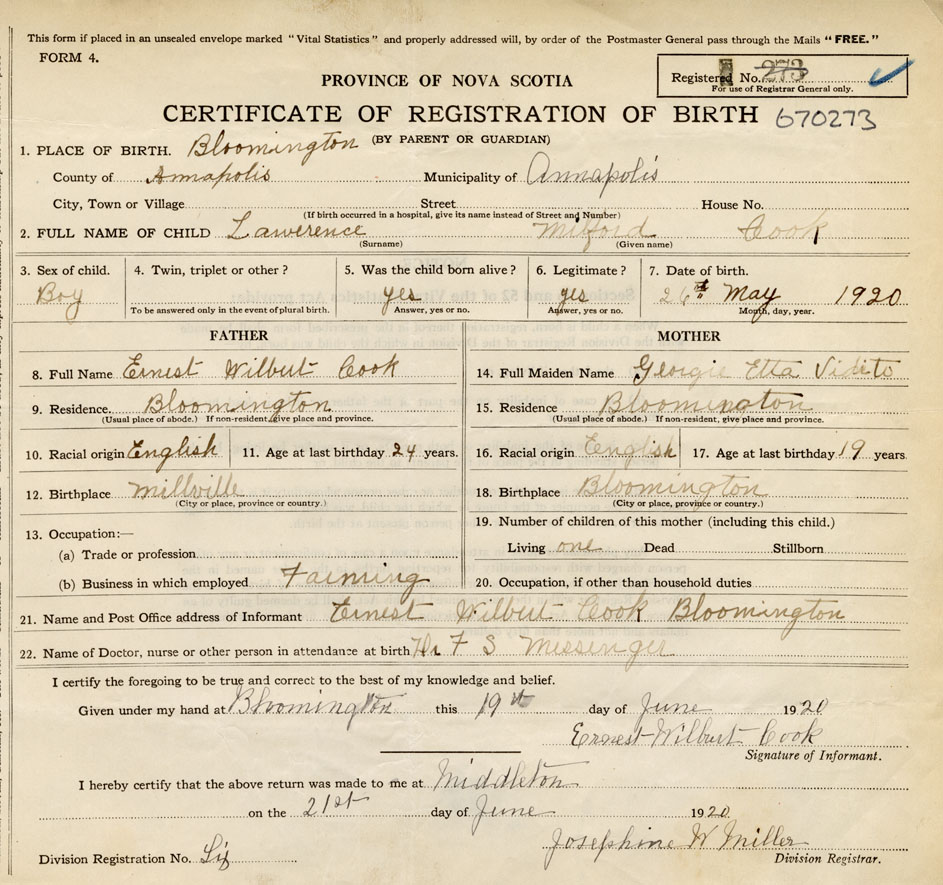 This form if placed in an unsealed envelope marked "Vital Statistics" and properly addressed will, by order of the Postmaster General pass through the Mails "FREE."
FORM 4.
PROVINCE OF NOVA SCOTIA
Registered No. 273
For use of Registrar General only.
CERTIFICATE OF REGISTRATION OF BIRTH 670273
(BY PARENT OR GUARDIAN)
1. PLACE OF BIRTH. Bloomington
County of Annapolis Municipality of Annapolis
City, Town or Village Street House No.
(If birth occurred in a hospital, give its name instead of Street and Number)
2. FULL NAME OF CHILD Lawerence Milford Cook
(Surname) (Given name)
3. Sex of child. 4. Twin, triplet or other? 5. Was the child born alive? 6. Legitimate? 7. Date of birth.
Boy yes yes 26th May 1920
To be answered only in the event of plural birth. Answer, yes or no. Answer, yes or no. Month, day, year.
FATHER
8. Full Name Ernest Wilbut Cook
9. Residence. Bloomington
(Usual place of abode.) If non-resident, give place and province.
10. Racial origin English 11. Age at last birthday 24 years.
12. Birthplace Millville
(City or place, province or country.)
13. Occupation:—
(a) Trade or profession
(b) Business in which employed Farming
MOTHER
14. Full Maiden Name Georgie Etta Vidito
15. Residence Bloomington
(Usual place of abode.) If non-resident, give place and province.
16. Racial origin English 17. Age at last birthday 19 years.
18. Birthplace Bloomington
(City or place, province or country.)
19. Number of children of this mother (including this child.)
Living one Dead Stillborn
20. Occupation, if other than household duties
21. Name and Post Office address of Informant Ernest Wilbut Cook Bloomington
22. Name of Doctor, nurse or other person in attendance at birth Dr F S Messenger
I certify the foregoing to be true and correct to the best of my knowledge and belief.
Given under my hand at Bloomington this 19th day of June 1920
Ernest Wilburt Cook
Signature of Informant.
I hereby certify that the above return was made to me at Middleton
on the 21st day of June 1920
Josephine W Miller
Division Registrar.
Division Registration No.